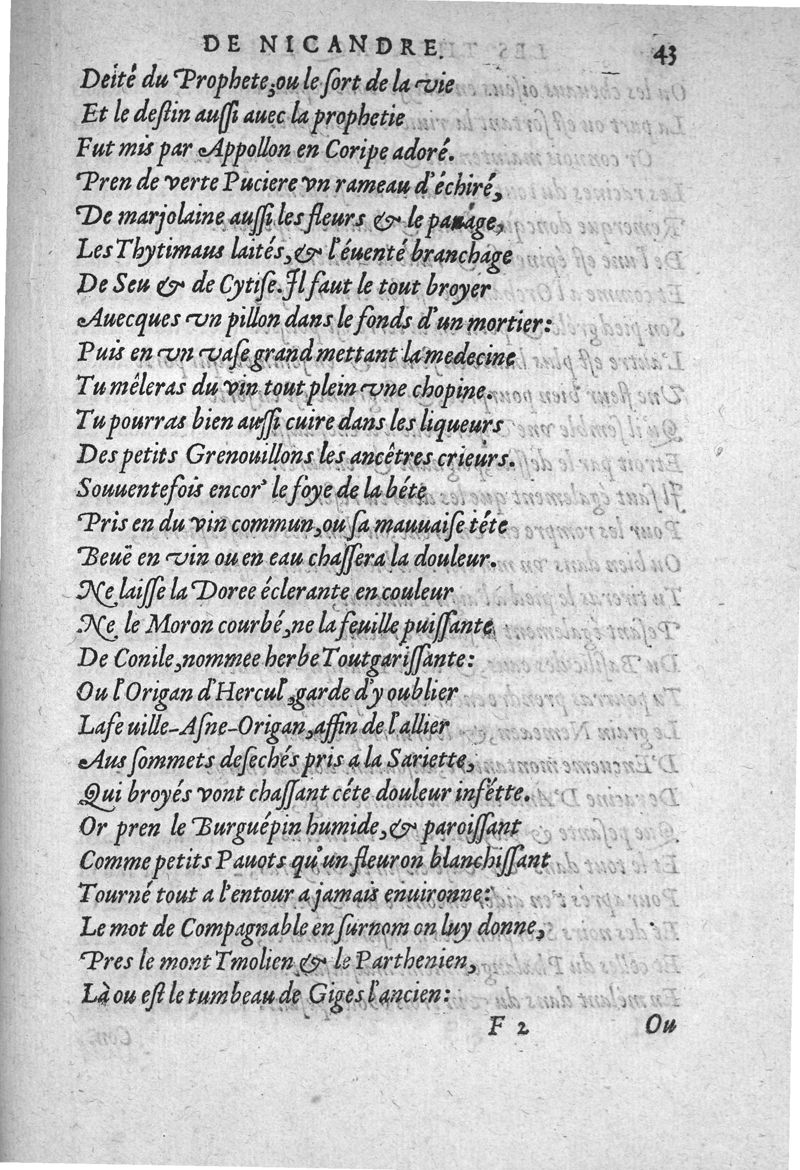 DE NICANDRE. 43
Deité du Prophete, ou le ſort de la vie
Et le deſtin auſſi auec la prophetie
Fut mis par Appollon en Coripe adoré.
Pren de verte Puciere vn rameau d'échiré,
De marjolaine auſſi les fleurs & le panage,
Les Thytimaus laités, & l'éuenté branchage
De Seu & de Cytiſe. Il faut le tout broyer
Auecques vn pillon dans le fonds d'un mortier:
Puis en vn vaſe grand mettant la medecine
Tu mêleras du vin tout plein vne chopine.
Tu pourras bien auſſi cuire dans les liqueurs
Des petits Grenouillons les ancêtres crieurs.
Souuentefois encor' le foye de la béte
Pris en du vin commun, ou ſa mauuaiſe téte
Beuë en vin ou en eau chaſſera la douleur.
Ne laiſſe la Doree éclerante en couleur
Ne le Moron courbé, ne la feuille puiſſante
De Conile, nommee herbe Toutgariſſante:
Ou l'Origan d'Hercul', garde d'y oublier
Lafe uille-Aſne-Origan, affin de l'allier
Aus ſommets deſechés pris a la Sariette,
Qui broyés vont chaſſant céte douleur infétte.
Or pren le Burguépin humide, & paroiſſant
Comme petits Pauots qu'un fleuron blanchiſſant
Tourné tout a l'entour a jamais enuironne:
Le mot de Compagnable en ſurnom on luy donne,
Pres le mont Tmolien & le Parthenien,
Là ou eſt le tumbeau de Giges l'ancien:
F 2 Ou